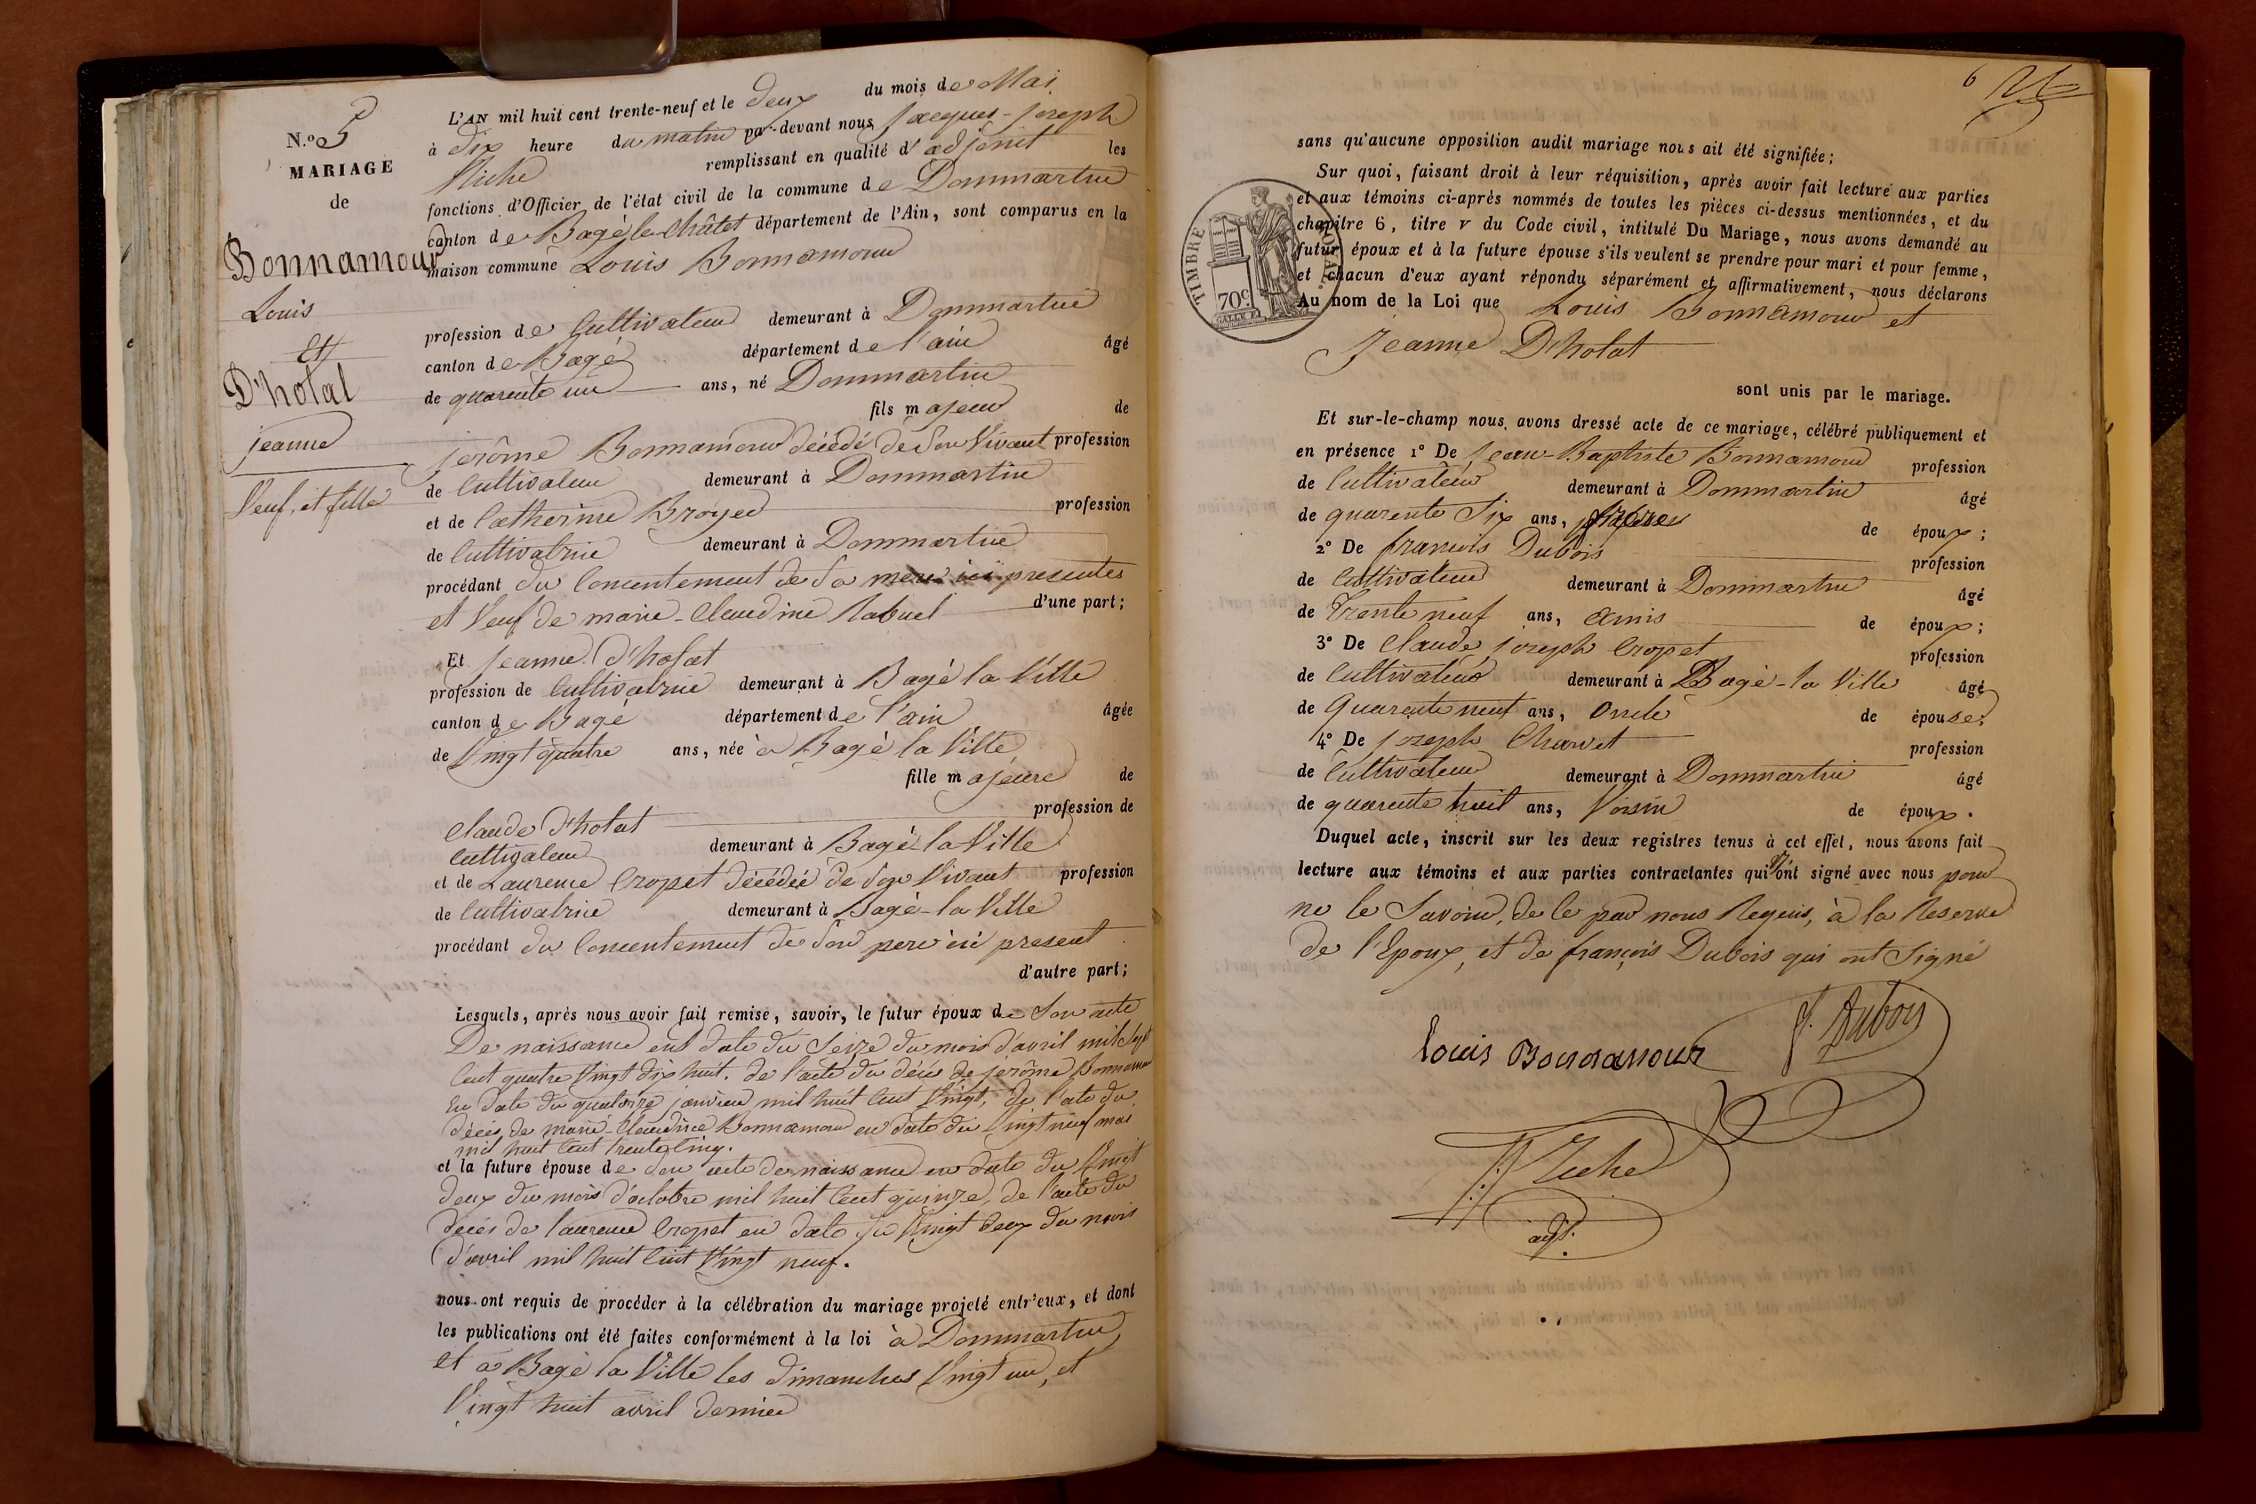 N.° 5
MARIAGE
de
Bonnamour
Louis
Et
D'hotal
jeanne
Veuf, et fille
L'AN mil huit cent trente-neuf et le deux du mois de Mai
à dix heure du matin par-devant nous jacques-joseph
remplissant en qualité d'adjoint les
fonctions d'Officier de l'état civil de la commune de Dommartin
canton de Bagé le Châtel département de l'Ain, sont comparus en la
maison commune Louis Bonnamour
profession de Cultivateur demeurant à Dommartin
canton de Bagé département de l'ain âgé
de quarente un ans, né Dommartin
fils majeur de
jérôme Bonnamour décédé de son Vivant profession
de Cultivateur demeurant à Dommartin
et de Catherine Broyer profession
de Cultivatrice demeurant à Dommartin
procédant du Concentement de Sa mere ici presentes
et Veuf de marie-Claudine Rabuel d'une part;
Et jeanne D'hotat
profession de Cultivatrice demeurant à Bagé la Ville
canton de Bagé département de l'ain âgée
de Vingt quatre ans, née à Bagé la Ville
fille majeure de
Claude D'hotat profession de
Cultivateur demeurant à Bagé-la Ville
et de Laurence Cropet décédée de son Vivant profession
de Cultivatrice demeurant à Bagé-la Ville
procédant du Concentement de Son pere ici present
d'autre part;
Lesquels, après nous avoir fait remise, savoir, le futur époux de Son acte
De naissance en date du Seize du mois d'avril mil Sept
Cent quatre Vingt dix huit. de l'acte du décès de jerôme Bonnamour
En date du quatorze janvier mil huit Cent Vingt, de l'acte du
décès de marie-Claudine Bonnamour en date du Vingt neuf mai
mil huit Cent trente Cinq.
et la future épouse de son acte de naissance en date du Vingt
deux du mois d'octobre mil huit Cent quinze, de l'acte du
décès de laurence Cropet en date du Vingt deux du mois
d'avril mil huit Cent Vingt neuf.
nous ont requis de procéder à la célébration du mariage projeté entr'eux, et dont
les publications ont été faites conformément à la loi à Dommartin
et à Bagé la Ville les dimanches Vingt un, et
Vingt huit avril dernier
6
sans qu'aucune opposition audit mariage nous ait été signifiée;
Sur quoi, faisant droit à leur réquisition, après avoir fait lecture aux parties
et aux témoins ci-après nommés de toutes les pièces ci-dessus mentionnées, et du
chapitre 6, titre V du Code civil, intitulé Du Mariage, nous avons demandé au
futur époux et à la future épouse s'ils veulent se prendre pour mari et pour femme,
et chacun d'eux ayant répondu séparément et affirmativement, nous déclarons
Au nom de la Loi que Louis Bonnamour et
Jeanne D'hotat
TIMBRE ROYAL.
70 c
sont unis par le mariage.
Et sur-le-champ nous avons dressé acte de ce mariage, célébré publiquement et
en présence 1° De Jean-Baptiste Bonnamour profession
de Cultivateur demeurant à Dommartin âgé
de quarente Six ans, de époux;
2° De francois Dubois profession
de Cultivateur demeurant à Dommartin âgé
de Trente neuf ans, amis de époux;
3° De Claude joseph Cropet profession
de Cultivateur demeurant à Bagé-la Ville âgé
de Quarente neuf ans, oncle de épouse;
4° De joseph Charvet profession
de Cultivateur demeurant à Dommartin âgé
de quarente huit ans, Voisin de époux.
Duquel acte, inscrit sur les deux registres tenus à cet effet, nous avons fait
lecture aux témoins et aux parties contractantes qui n'ont signé avec nous pour
ne le Savoir, de le par nous Requis, à la Reserve
de l'Epoux, et de françois Dubois qui ont Signé
Louis Bonnamour
f. Dubois
adjt.